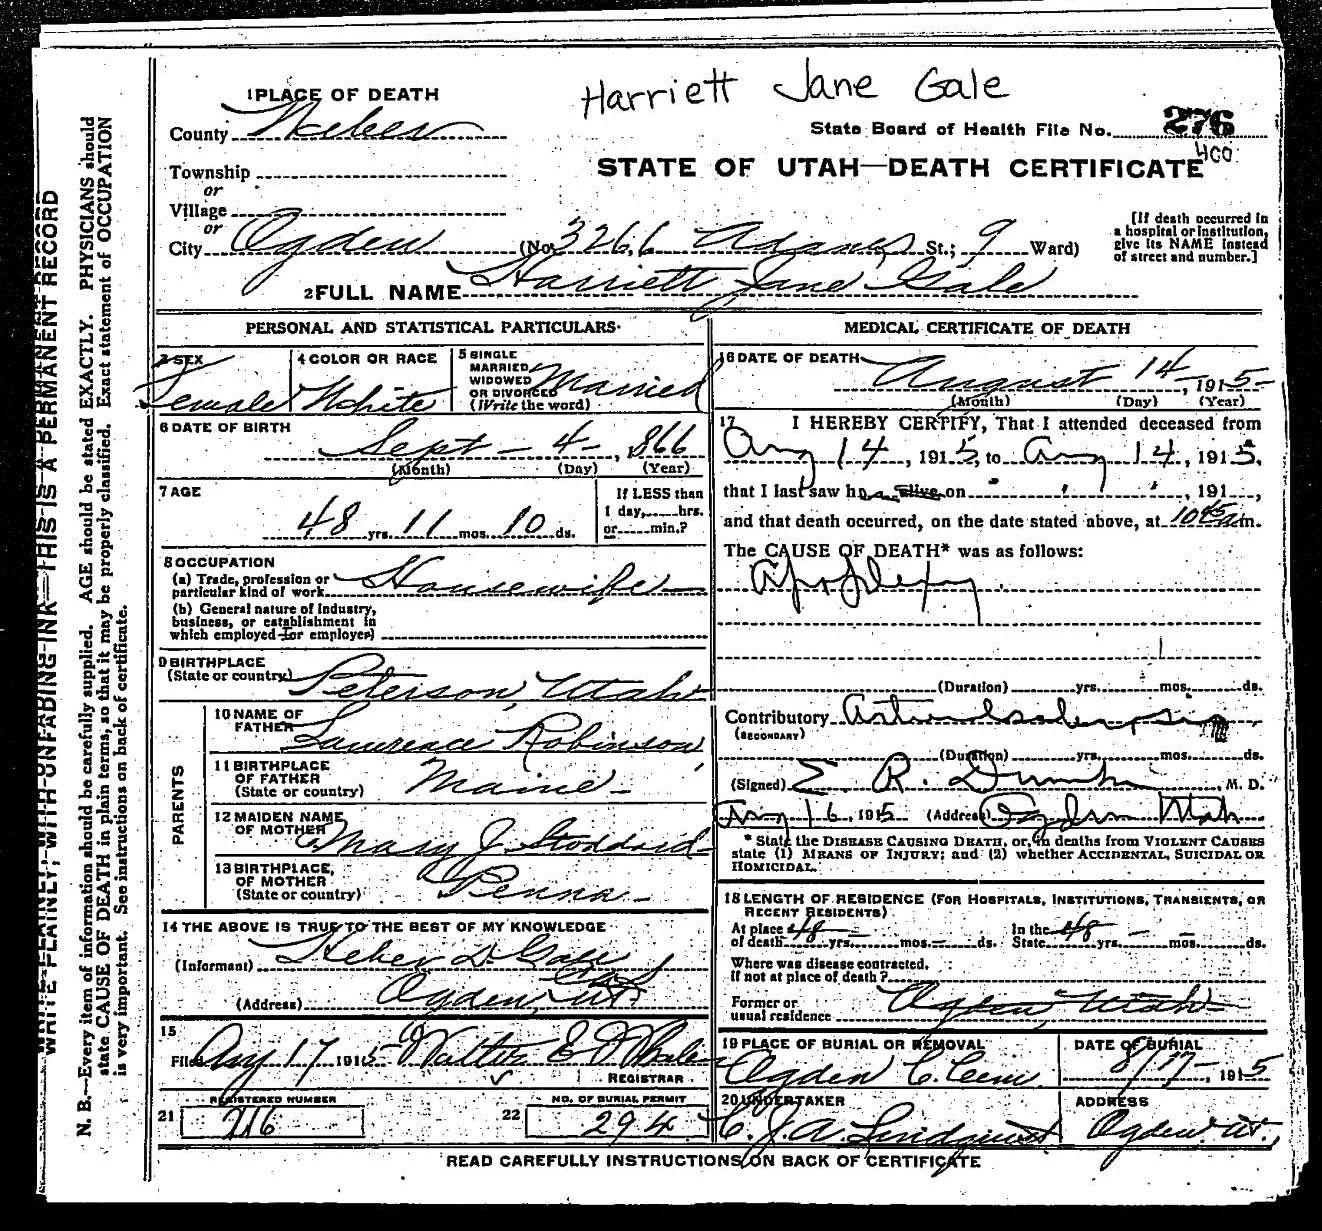 Harriett Jane Gale
1 PLACE OF DEATH
County Weber
State Board of Health File No. 276
400
Township
STATE OF UTAH—DEATH CERTIFICATE
or
Village
or
City Ogden (No. 3266 Adams St.; 9 Ward)
[If death occurred in
a hospital or institution,
give its NAME instead
of street and number.]
2 FULL NAME Harriett Jane Gale
PERSONAL AND STATISTICAL PARTICULARS
3 SEX
Female
4 COLOR OR RACE
White
5 SINGLE
MARRIED
WIDOWED
OR DIVORCED
(Write the word)
Married
6 DATE OF BIRTH
Sept - 4 -, 1866
(Month) (Day) (Year)
7 AGE
48 yrs. 11 mos. 10 ds.
If LESS than
1 day, hrs.
or min.?
8 OCCUPATION
(a) Trade, profession or
particular kind of work Housewife
(b) General nature of industry,
business, or establishment in
which employed (or employer)
9 BIRTHPLACE
(State or country) Peterson, Utah
PARENTS
10 NAME OF
FATHER Lawrence Robinson
11 BIRTHPLACE
OF FATHER
(State or country) Maine
12 MAIDEN NAME
OF MOTHER Mary J. Stoddard
13 BIRTHPLACE,
OF MOTHER
(State or country) Penna
14 THE ABOVE IS TRUE TO THE BEST OF MY KNOWLEDGE
(Informant) Heber D Gale
(Address) Ogden, Ut
15
Filed Aug 17 1915 Walter E
REGISTRAR
REGISTERED NUMBER
21 216
NO. OF BURIAL PERMIT
22 294
MEDICAL CERTIFICATE OF DEATH
16 DATE OF DEATH
August 14, 1915
(Month) (Day) (Year)
17 I HEREBY CERTIFY, That I attended deceased from
Aug 14, 1915, to Aug 14, 1915,
that I last saw h alive on " " ", 191,
and that death occurred, on the date stated above, at 10 45 am.
The CAUSE OF DEATH* was as follows:
Apoplexy
(Duration) yrs. mos. ds.
Contributory
(SECONDARY)
(Duration) yrs. mos. ds.
(Signed) E. R. M. D.
Aug 16, 1915 (Address) Ogden Utah
* State the DISEASE CAUSING DEATH, or, in deaths from VIOLENT CAUSES
state (1) MEANS OF INJURY; and (2) whether ACCIDENTAL, SUICIDAL OR
HOMICIDAL.
18 LENGTH OF RESIDENCE (FOR HOSPITALS, INSTITUTIONS, TRANSIENTS, OR
RECENT RESIDENTS)
At place
of death 48 yrs. - mos. - ds.
In the
State 48 yrs. - mos. - ds.
Where was disease contracted,
if not at place of death?
Former or
usual residence Ogden, Utah
19 PLACE OF BURIAL OR REMOVAL
Ogden C. Cem.
DATE OF BURIAL
8/17, 1915
20 UNDERTAKER
C. J. A. Lindquist
ADDRESS
Ogden Ut.,
READ CAREFULLY INSTRUCTIONS ON BACK OF CERTIFICATE
WRITE PLAINLY, WITH UNFADING INK—THIS IS A PERMANENT RECORD
N. B.—Every item of information should be carefully supplied. AGE should be stated EXACTLY. PHYSICIANS should
state CAUSE OF DEATH in plain terms, so that it may be properly classified. Exact statement of OCCUPATION
is very important. See instructions on back of certificate.